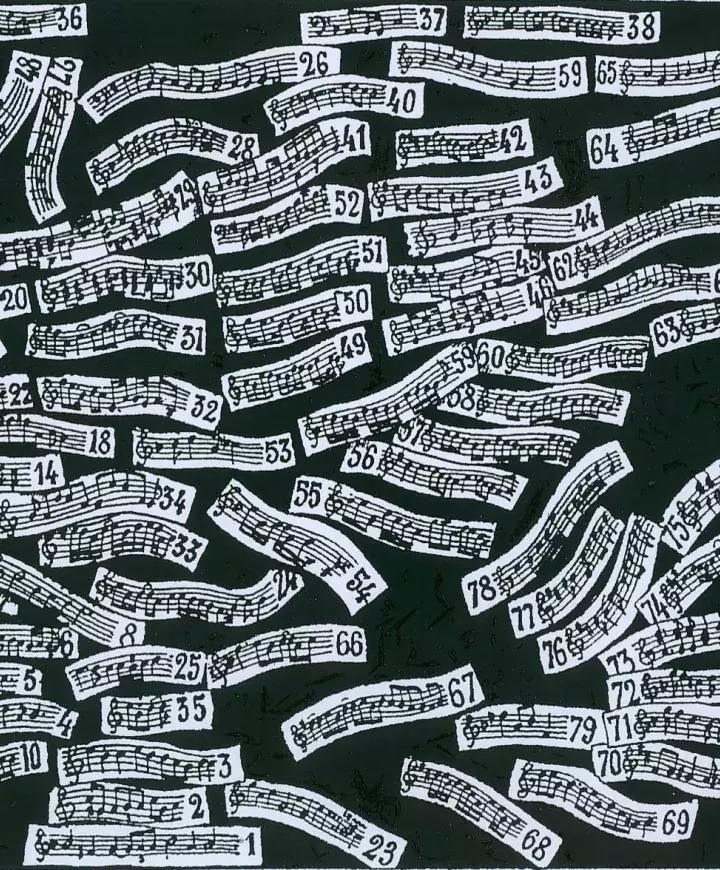 36
37
38
48
27
26
59
65
40
28
41
42
64
43
29
52
44
51
45
62
30
20
50
46
63
31
49
59
60
22
32
58
18
53
57
56
14
34
55
33
54
78
75
24
77
74
8
76
6
66
73
25
5
72
67
35
4
79
71
10
3
70
2
69
1
23
68